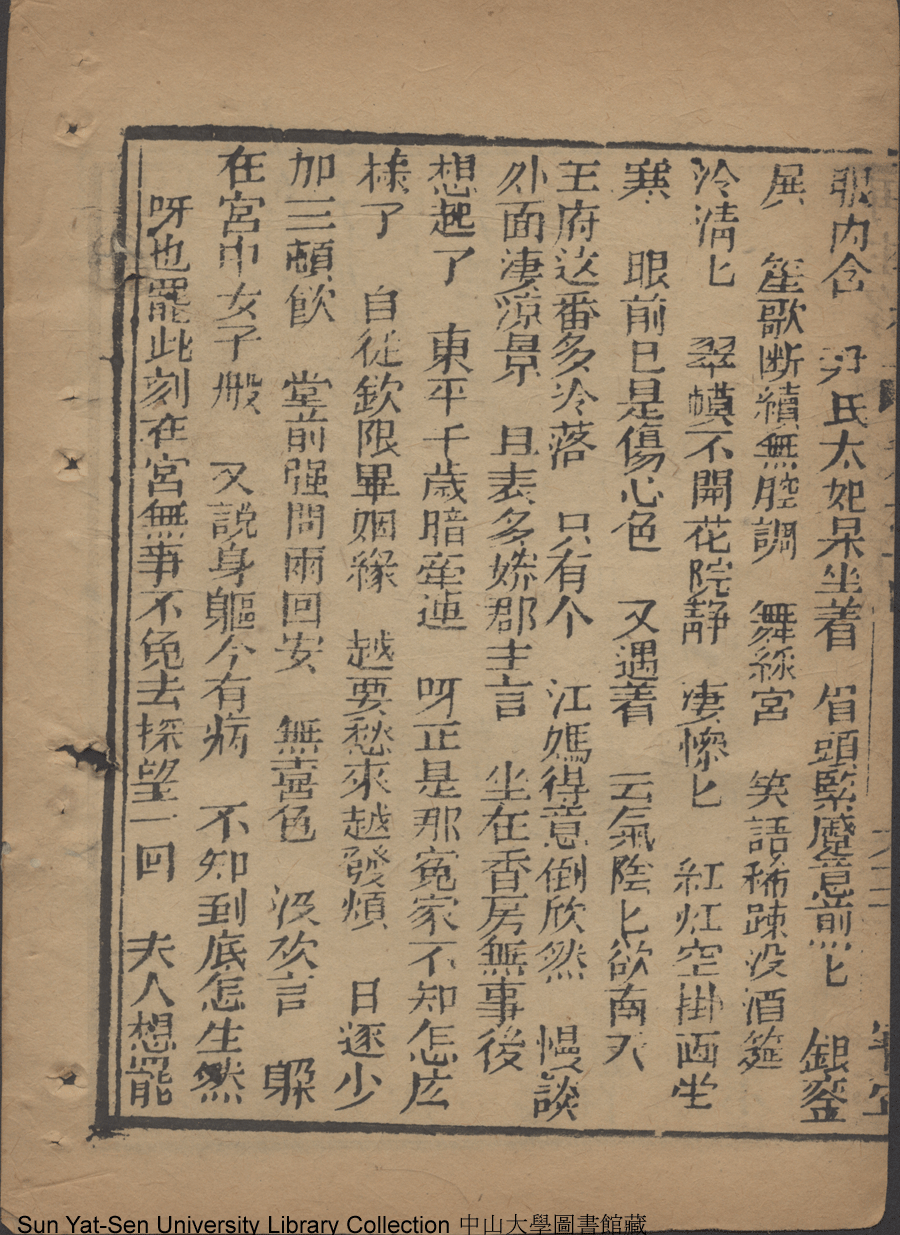 眼内含　尹氏太妃呆坐着　眉頭緊蹙意煎匕　銀釜
展　笙歌断續無腔調　舞綵宮　笑語稀踈没酒筵
泠清匕　翠幙不開花院静　凄惨匕　紅灯空掛画坐
寒　眼前已是傷心色　又遇着　云氣陰匕欲南天
王府这番多泠落　只有个　江媽得意倒欣然　慢談
外面淒涼景　且表多嬌郡主言　坐在香房無事後
想起了　東平千歳暗牽連　呀正是那冤家不知怎庅
様了　自従欽限畢姻縁　越要愁來越發煩　日逐少
加三頓飲　堂前强問兩回安　無喜色　没欢言　躲
在宮中女子般　又說身軀今有病　不知到底怎生然
呀也罷此刻在宮無事不免去探望一回　夫人想罷
Sun Yat-Sen University Library Collection 中山大學圖書館藏